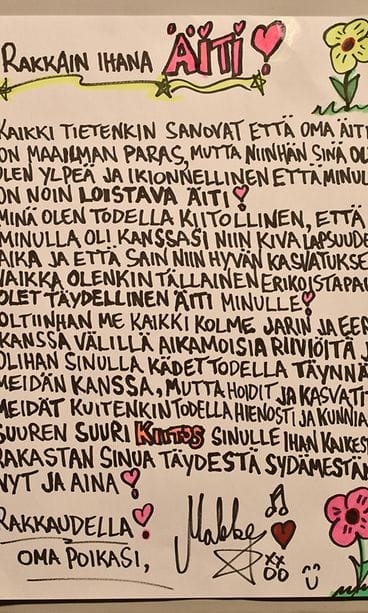 RAKKAIN IHANA ÄITI
KAIKKI TIETENKIN SANOVAT ETTÄ OMA ÄITI
ON MAAILMAN PARAS, MUTTA NIINHÄN SINÄ OL
OLEN YLPEÄ JA IKIONNELLINEN ETTÄ MINUL
ON NOIN LOISTAVA ÄITI!
MINÄ OLEN TODELLA KIITOLLINEN, ETTÄ
MINULLA OLI KANSSASI NIIN KIVA LAPSUUDE
AIKA JA ETTÄ SAIN NIIN HYVÄN KASVATUKSE
VAIKKA OLENKIN TÄLLAINEN ERIKOISTAPA
OLET TÄYDELLINEN ÄITI MINULLE!
OLTIINHAN ME KAIKKI KOLME JARIN JA EER
KANSSA VÄLILLÄ AIKAMOISIA RIIVIÖITÄ J
OLIHAN SINULLA KÄDET TODELLA TÄYNNÄ
MEIDÄN KANSSA, MUTTA HOIDIT JA KASVATI
MEIDÄT KUITENKIN TODELLA HIENOSTI JA KUNNIA
SUUREN SUURI KIITOS SINULLE IHAN KAIKES
RAKASTAN SINUA TÄYDESTÄ SYDÄMESTÄN
NYT JA AINA!
RAKKAUDELLA!
OMA POIKASI,
Makke
XX
OO